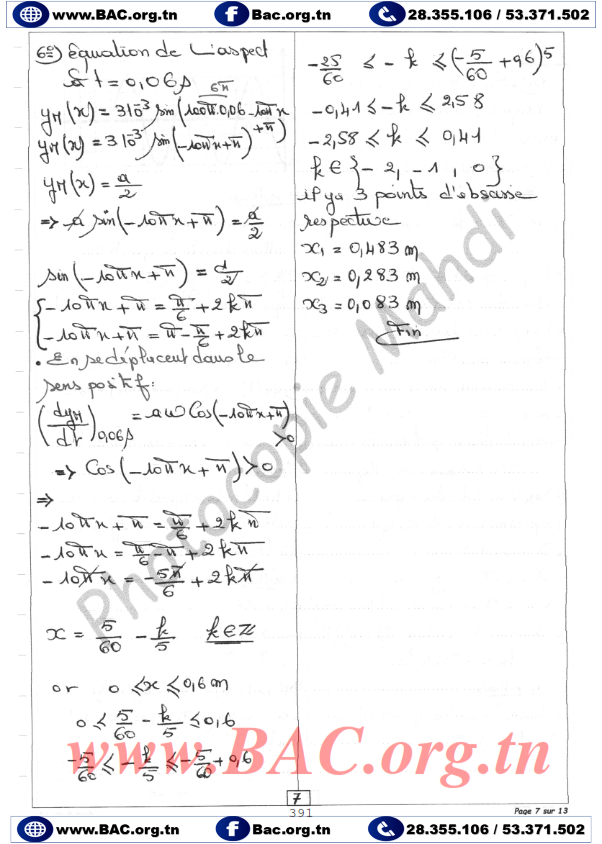 www.BAC.org.tn Bac.org.tn 28.355.106 / 53.371.502
6°) Equation de L'aspect
à t = 0,06s
6π
y_M(x) = 3 10^-3 sin(100π.0,06 - 10πx + π)
y_M(x) = 3 10^-3 sin(-10πx + π)
y_M(x) = a/2
=> a sin(-10πx + π) = a/2
sin(-10πx + π) = 1/2
{ -10πx + π = π/6 + 2kπ
-10πx + π = π - π/6 + 2kπ
. En se déplacent dans le
sens positif:
(dy_M/dt)_0,06s = aω Cos(-10πx + π) > 0
=> Cos(-10πx + π) > 0
=>
-10πx + π = π/6 + 2kπ
-10πx = π/6 - π + 2kπ
-10πx = -5π/6 + 2kπ
x = 5/60 - k/5 k ∈ Z
or 0 ≤ x ≤ 0,6 m
0 ≤ 5/60 - k/5 ≤ 0,6
-5/60 ≤ -k/5 ≤ -5/60 + 0,6
-25/60 ≤ -k ≤ (-5/60 + 0,6)5
-0,41 ≤ -k ≤ 2,58
-2,58 ≤ k ≤ 0,41
k ∈ {-2, -1, 0}
il y a 3 points d'abscisse
respective
x1 = 0,483 m
x2 = 0,283 m
x3 = 0,083 m
Fin
Photocopie Mahdi
www.BAC.org.tn
7
391
Page 7 sur 13
www.BAC.org.tn Bac.org.tn 28.355.106 / 53.371.502